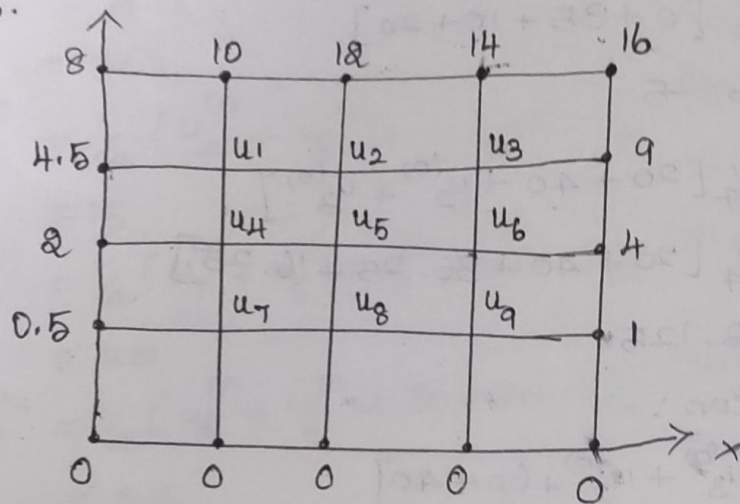 8 10 12 14 16
4.5 u1 u2 u3 9
2 u4 u5 u6 4
0.5 u7 u8 u9 1
x
0 0 0 0 0